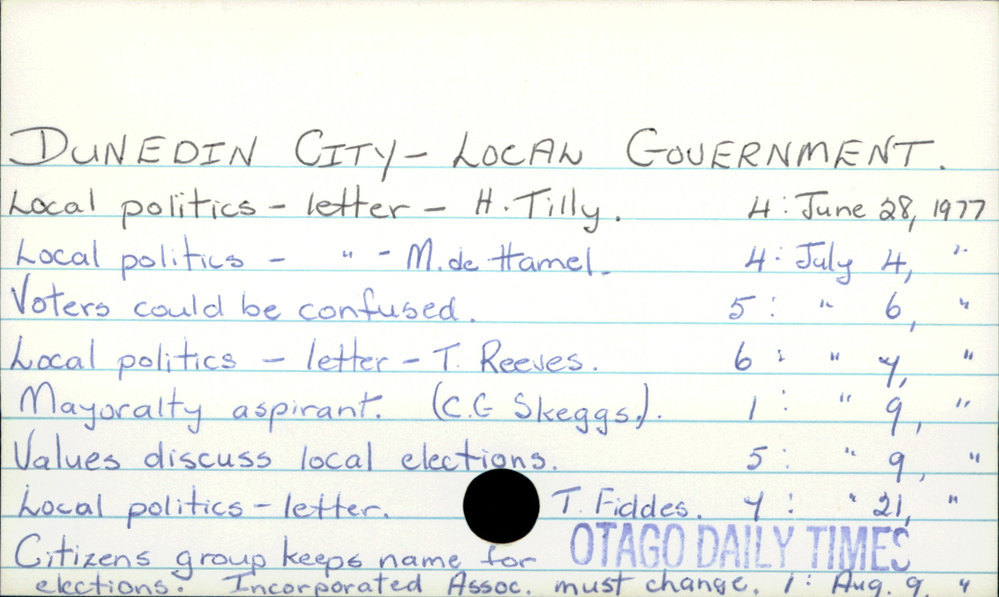 DUNEDIN CITY - LOCAL GOVERNMENT.
Local politics - letter - H. Tilly. 4: June 28, 1977
Local politics - " - M. de Hamel. 4: July 4, "
Voters could be confused. 5: " 6, "
Local politics - letter - T. Reeves. 6: " 7, "
Mayoralty aspirant. (C.G Skeggs.). 1: " 9, "
Values discuss local elections. 5: " 9, "
Local politics - letter. T. Fiddes. 7: " 21, "
Citizens group keeps name for OTAGO DAILY TIMES
elections. Incorporated Assoc. must change. 1: Aug. 9. "